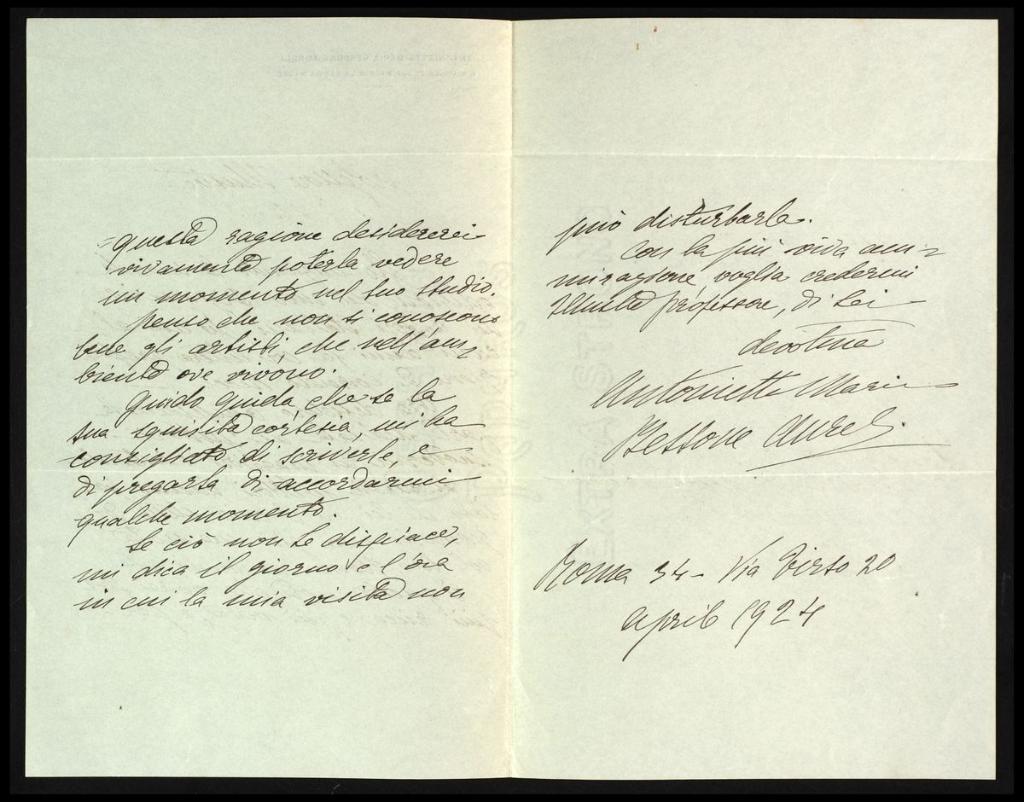 questa ragione desidererei
vivamente poterla vedere
un momento nel suo studio.
Penso che non si conoscono
bene gli artisti, che nell'am=
biente ove vivono.
Guido Guida, che sa la
sua squisita cortesia, mi ha
consigliato di scriverle, e
di pregarla di accordarmi
qualche momento.
Se ciò non le dispiace,
mi dica il giorno e l'ora
in cui la mia visita non
può disturbarla.
Con la più viva am=
mirazione voglia credermi
Illustre professore, di Lei
devotma
Antonietta Maria
Bessone Aurelj.
Roma 34 - Via Tirso 20
April 1924